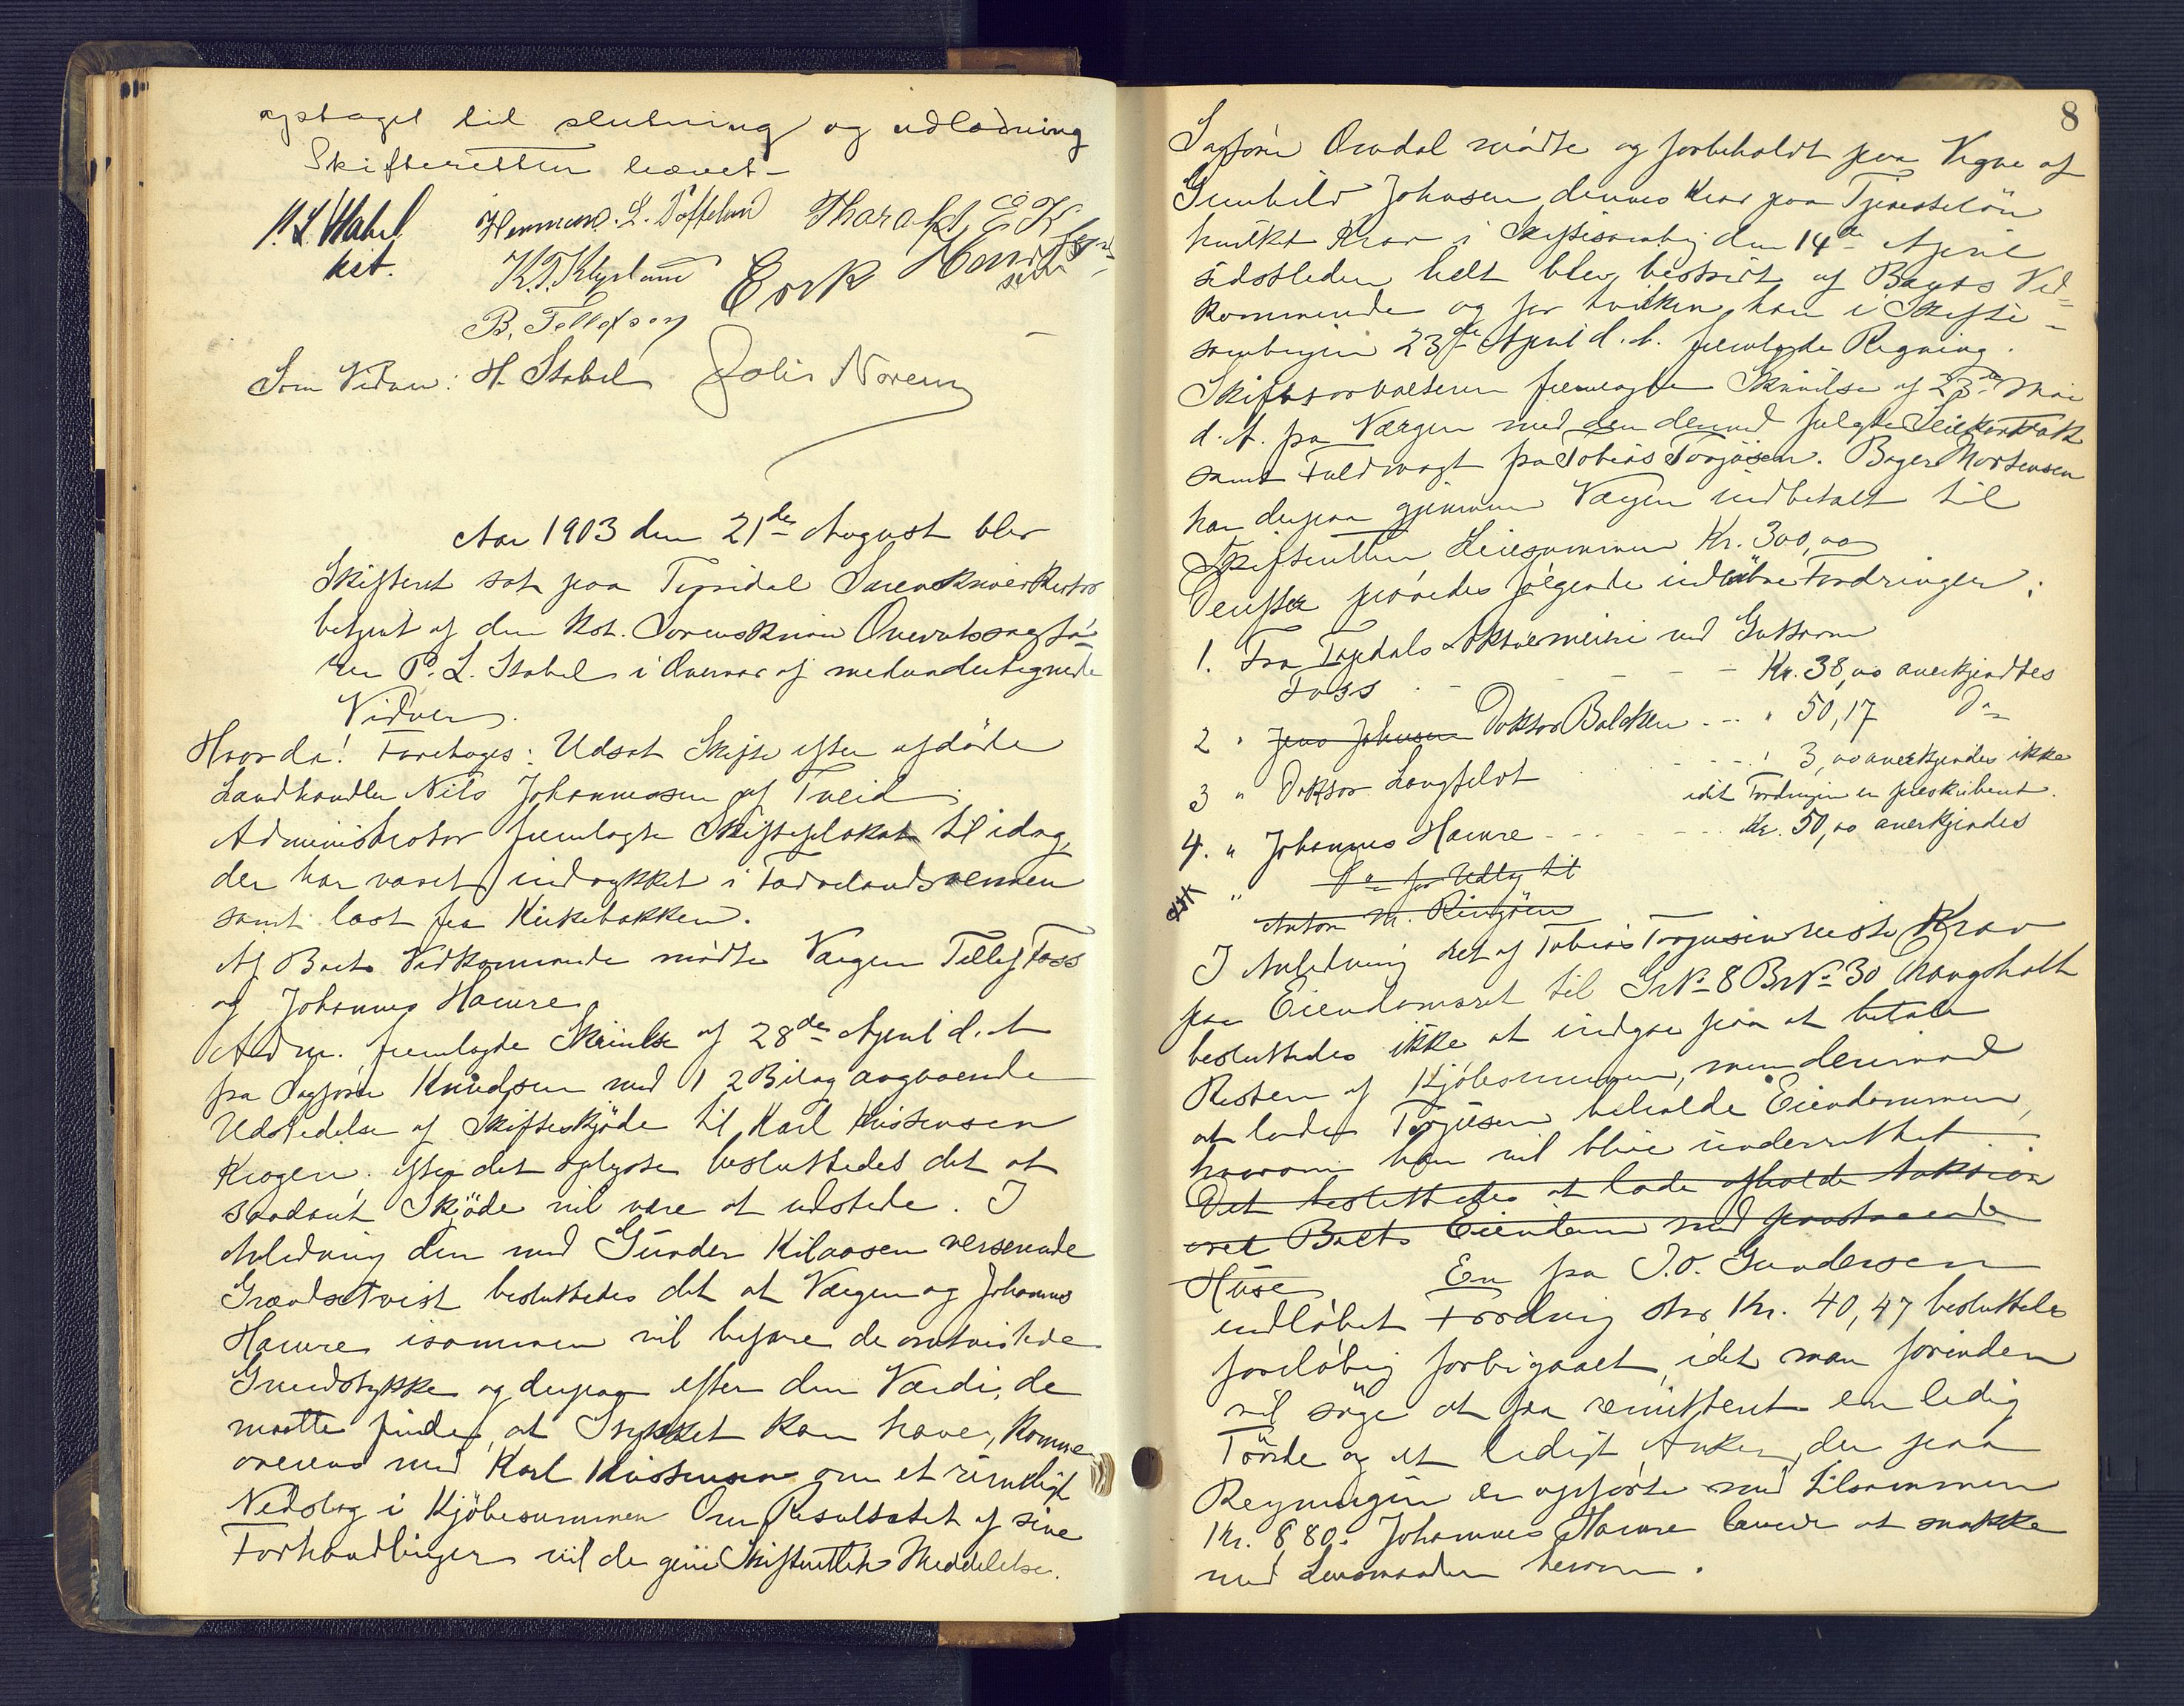 optaget til slutning og udlodning
Skifteretten hævet –
P. L. Stabel
kst.
Thorald
Erik
B. Tellefsen
Som Vidner: H. Stabel
Aar 1903 den 21de August blev
Skifteret sat paa Topdal Sorenskriverkontor
betjent af den kst. Sorenskriver Overretssagfö-
rer P. L. Stabel i Overvær af medundertegnede
Vidner.
Hvorda! Foretoges: Udsat Skifte efter afdöde
Landhandler Nils Johannessen af Tveid.
Administrator fremlagte Skifteplakat til idag,
der har været indrykket i Fædrelandsvennen
samt læst fra Kirkebakken.
Af Boets Vedkommende mödte Værgen Tellef Foss
og Johannes Hamre.
Adm. fremlagde Skrivelse af 28de April d. A.
fra Sagförer Knudsen med 2 Bilag angaaende
Udstedelse af Skifteskjöde til Karl Kristensen
Krogen. Efter det oplyste besluttedes det at
saadant Skjöde vil være at udstede. I
Anledning den med Gunder Kilaasen verserende
Grændsetvist besluttedes det at Værgen og Johannes
Hamre isammen vil befare de omtvistede
Grundstykke og derpaa efter den Værdi, de
maatte finde, at Stykket kan have, komme
overens med Karl Kristensen om et rimeligt
Nedslag i Kjöbesummen. Om Resultatet af sine
Forhandlinger vil de give Skifteretten Meddelelse.
8
Sagförer Omdal mödte og forbeholdt paa Vegne af
Gunhild Johnsen dennes Krav paa Tjenestelön
hvilket Krav i Skiftesamling den 14de April
sidstleden helt blev bestridt af Boets Ved-
kommende og for hvilken han i Skifte-
samlingen 23de April d. A. fremlagde Regning.
Skifteforvalteren fremlagde Skrivelse af 23de Mai
d. A. fra Værgen med den dermed fulgte Leiekontrakt
samt Fuldmagt fra Tobias Torjusen. Bager Mortensen
har derpaa gjennem Værgen indbetalt til
Skifteretten Leiesummen Kr. 300,00
Derefter prövedes fölgende indkomne Fordringer:
1. Fra Topdals Aktiemeieri ved Guttorm
Foss - - - Kr. 38,00 anerkjendtes
2 " Jens Johnsen Doktor Balchen - - - " 50,17 Do
3 " Doktor Langfeldt - - - - " 3,00 anerkjendes ikke
idet Fordringen er præskriberet.
4. " Johannes Hamre - - - - - Kr. 50,00 anerkjendes
" Do for Udlæg til
Anton M. Ringöen
I Anledning det af Tobias Torjusen reiste Krav
paa Eiendomsret til GNo 8 BrNo 30
besluttedes ikke at indgaa paa at betale
Resten af Kjöbesummen, men derimod
at lade Torjusen beholde Eiendommen,
hvorom han vil blive underrettet.
Det besluttedes at lade afholde Auktion
over Boets Eiendom med paastaaende
Huse En fra J. O. Gundersen
indlöbet Fordring stor Kr. 40,47 besluttedes
forelöbig forbigaaet, idet man forinden
vil söge at faa remitteret en ledig
Tönde og et ledigt Anker, der paa
Regningen er opförte med tilsammen
Kr. 8,80. Johannes Hamre lovede at snakke
med Lensmanden herom.